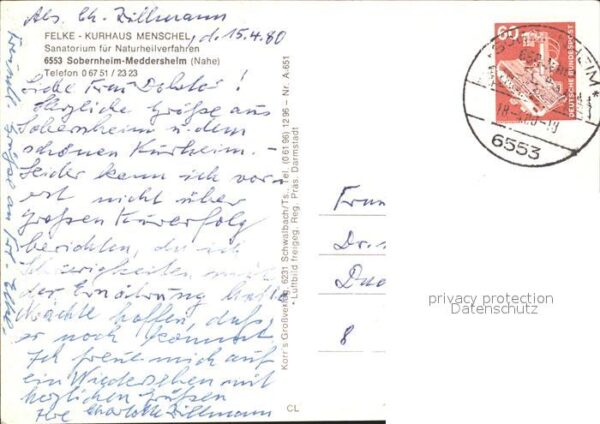 Abs. Ch. Zillmann
d. 15.4.80
FELKE - KURHAUS MENSCHEL
Sanatorium für Naturheilverfahren
6553 Sobernheim-Meddersheim (Nahe)
Telefon 0 67 51 / 23 23
Liebe Frau Doktor!
Herzliche Grüße aus
Sobernheim u. dem
schönen Kurheim. -
Leider kann ich vor-
erst nicht über
großen Kurerfolg
berichten, da ich
Schwierigkeiten mit
der Ernährung hatte
möchte hoffen, daß
er noch kommt
Ich freue mich auf
ein Wiedersehen mit
herzlichen Grüßen
Ihre Charlotte Zillmann
Grüße an
Korr's Großverlag, 6231 Schwalbach/Ts., Tel. (0 61 96) 12 95 - Nr. A-651
Luftbild freigeg. Reg. Präs. Darmstadt
CL
60
DEUTSCHE BUNDESPOST
6553
Frau
Dr.
8
privacy protection
Datenschutz